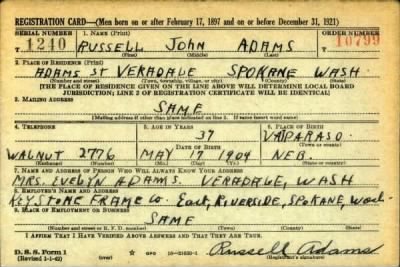 REGISTRATION CARD—(Men born on or after February 17, 1897 and on or before December 31, 1921)
SERIAL NUMBER 1. NAME (Print) ORDER NUMBER
T 1240 RUSSELL JOHN ADAMS 10799
(First) (Middle) (Last)
2. PLACE OF RESIDENCE (Print)
ADAMS ST VERADALE SPOKANE WASH
(Number and street) (Town, township, village, or city) (County) (State)
[THE PLACE OF RESIDENCE GIVEN ON THE LINE ABOVE WILL DETERMINE LOCAL BOARD
JURISDICTION; LINE 2 OF REGISTRATION CERTIFICATE WILL BE IDENTICAL]
3. MAILING ADDRESS
SAME
[Mailing address if other than place indicated on line 2. If same insert word same]
4. TELEPHONE 5. AGE IN YEARS 6. PLACE OF BIRTH
37 VALPARASO
DATE OF BIRTH (Town or county)
WALNUT 2776 MAY 17 1904 NEB.
(Exchange) (Number) (Mo.) (Day) (Yr.) (State or country)
7. NAME AND ADDRESS OF PERSON WHO WILL ALWAYS KNOW YOUR ADDRESS
MRS. Evelyn ADAMS. VERADALE, WASH
8. EMPLOYER'S NAME AND ADDRESS
KEYSTONE FRAME Co. East, RIVERSIDE, SPOKANE, Wash.
9. PLACE OF EMPLOYMENT OR BUSINESS
SAME
(Number and street or R. F. D. number) (Town) (County) (State)
I AFFIRM THAT I HAVE VERIFIED ABOVE ANSWERS AND THAT THEY ARE TRUE.
D. S. S. Form 1
(Revised 1-1-42) GPO 16—21630-1 Russell Adams